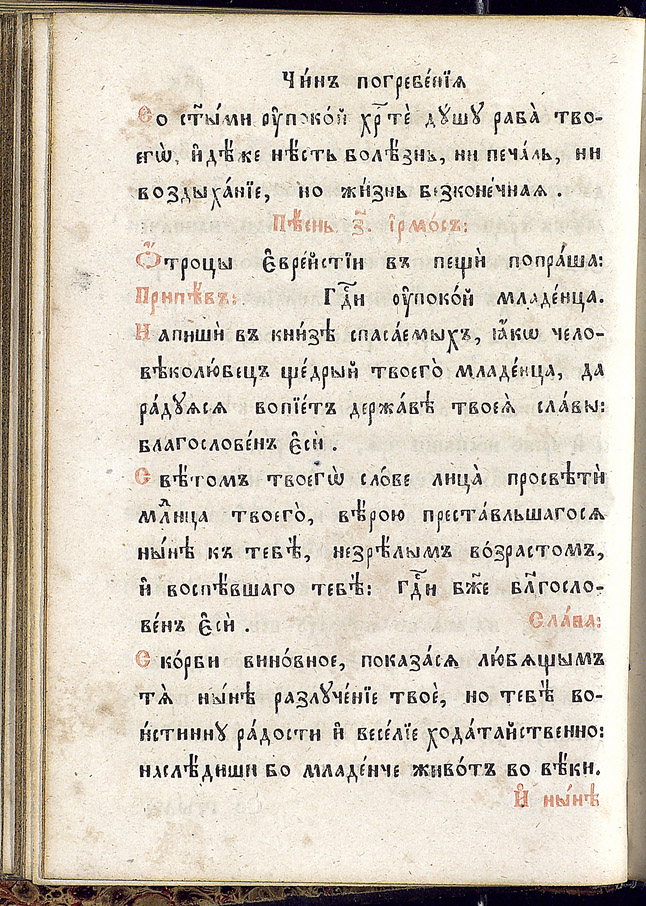 Чи́нъ погребе́нїѧ
Со ст҃ы́ми ᲂу҆поко́й хрⷭ҇тѐ дꙋ́шꙋ рабà тво-
егѡ̀, и҆дѣ́же нѣ́сть болѣ́знь, ни печа́ль, ни
воздыха́нїе, но жи́знь безконе́чнаѧ .
Пѣ́снь. з҃. і҆рмо́съ:
Ѿтроцы є҆вре́йстїи въ пещѝ попра́ша:
Припѣ́въ: Гдⷭ҇и ᲂу҆поко́й младе́нца.
Напишѝ въ кни́зѣ спаса́емыхъ, ꙗ҆́кѡ чело-
вѣколю́бецъ ще́дрый твоего̀ младе́нца, да
ра́дꙋѧсѧ вопїе́тъ держа́вѣ твоеѧ̀ сла́вы:
благослове́нъ є҆сѝ .
Свѣ́томъ твоегѡ̀ сло́ве лицà просвѣтѝ
млⷣнца твоего̀, вѣ́рою преста́вльшагосѧ
ны́нѣ къ тебѣ̀, незрѣ́лымъ во́зрастомъ,
и҆ воспѣ́вшаго тебѣ̀: гдⷭ҇и бж҃е блⷢ҇осло-
ве́нъ є҆сѝ . Сла́ва:
Ско́рби вино́вное, показа́сѧ лю́бѧщымъ
тѧ̀ ны́нѣ разлꙋче́нїе твоѐ, но тебѣ̀ во-
и́стиннꙋ ра́дости и҆ весе́лїе хода́тайственно:
наслѣ́диши бо младе́нче живо́тъ во вѣ́ки.
И҆ ны́нѣ